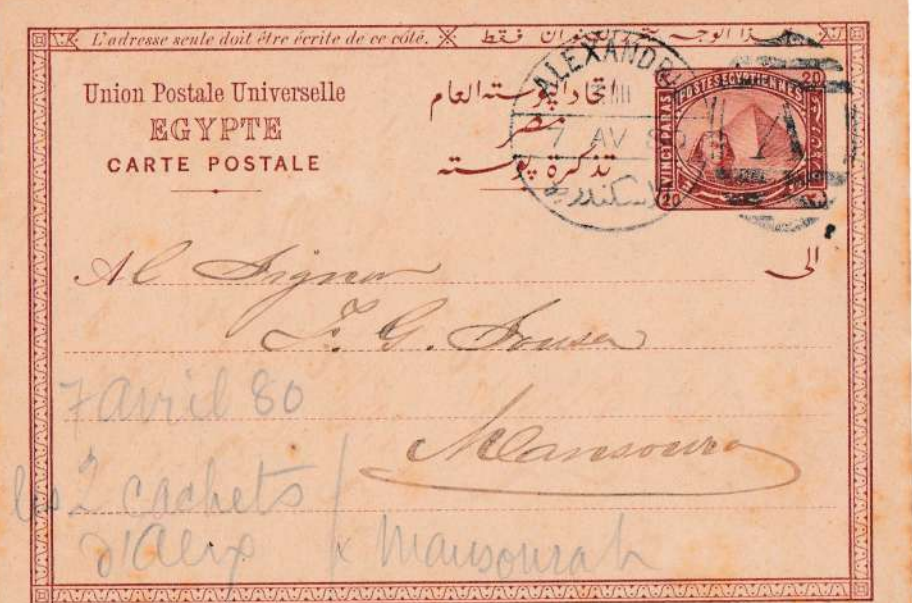 L'adresse seule doit être écrite de ce côté. هذا الوجه فقط
Union Postale Universelle
EGYPTE
CARTE POSTALE
اتحاد البوسته العام
مصر
تذكرة بوسته
ALEXANDRI
7 AV 80
اسكندريه
POSTES EGYPTIENNES
VINGT PARAS
20
20
الى
Al Signor
J. G.
Mansoura
7 avril 80
les 2 cachets
d'Alex / & Mansourah